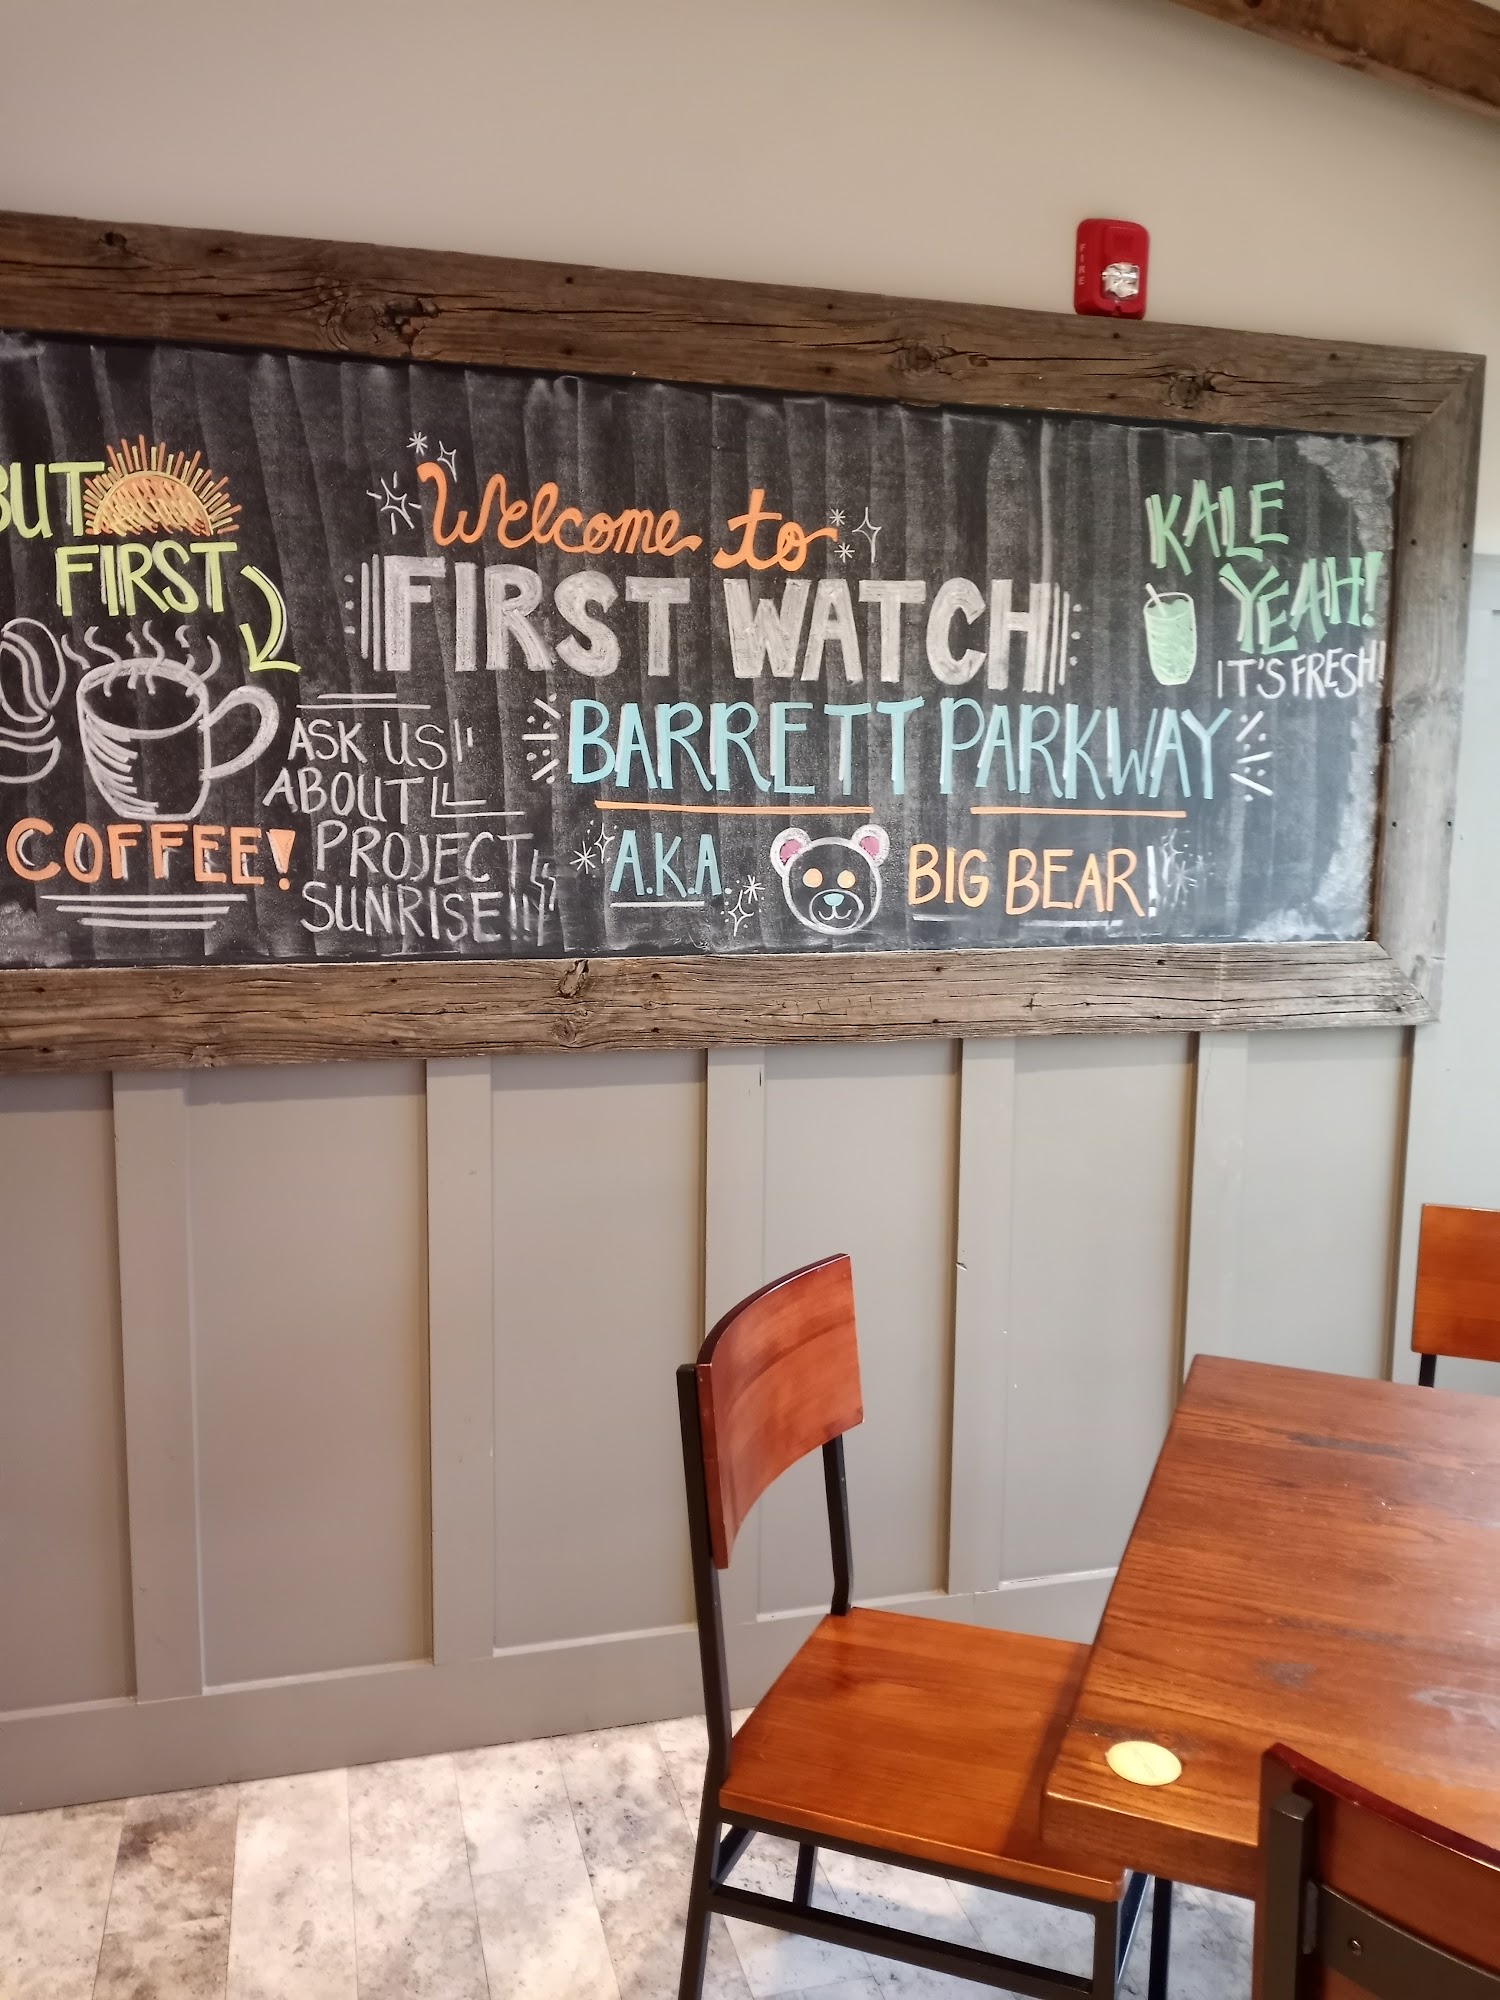 BUT
FIRST
COFFEE!
ASK US
ABOUT
PROJECT
SUNRISE!!
Welcome to
FIRST WATCH
BARRETT PARKWAY
A.K.A.
BIG BEAR!
KALE
YEAH!
IT'S FRESH!
FIRE